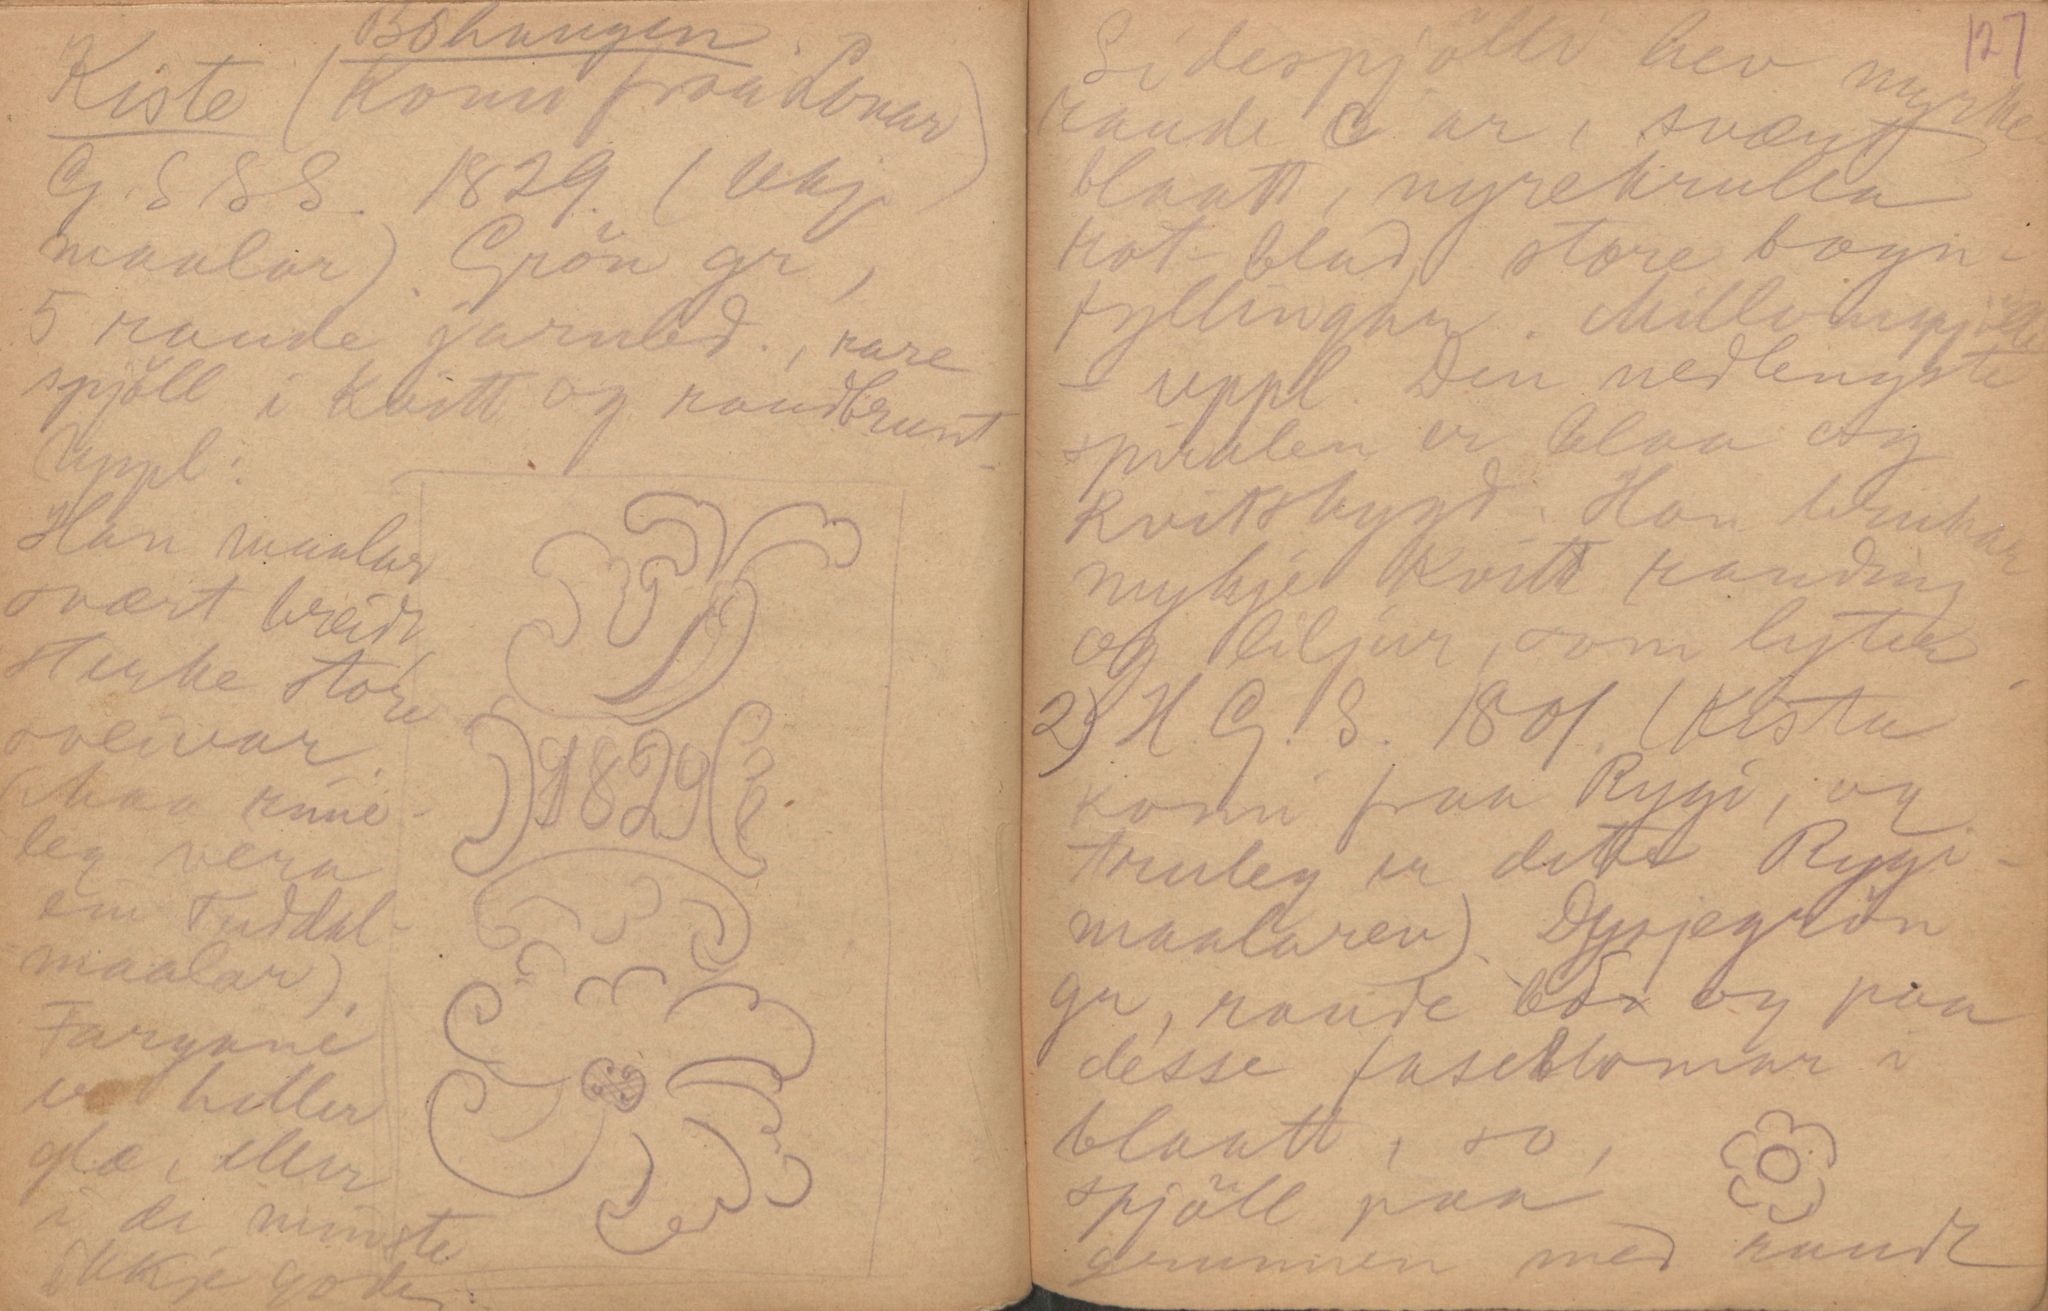 Böhaugen
Kiste (Komi fraa Lonar)
G. S S S. 1829. (Ukj
maalar). Grön gr,
5 raude jarnbd., rare
spjöll i kvitt og raudbrunt
Uppl:
Han maalar
svært breidt
sterke store
sveivar.
(Maa rime-
leg vera
ein Tuddal-
maalar).
Fargane
er heller
glæ, eller
i de minste
ikkje gode.
1829
127
Sidespjölli hev myrke
raude C ar, svært
blaatt, nyrekrulla
rot-blad, store bogn-
fyllingar. Millomspjölli
- uppl. Den nedlengste
spiralen er blaa og
kvitskuggd. Han brukar
mykje kvitt randing
og liljur, som lyter.
2) H. G. S. 1801. (Kista
komi fraa Rygi, og
truleg er dette Rygi-
maalaren). Djupegrön
gr, raude bd og paa
desse fatblomar i
blaatt, so,
spjöll paa
grunnen med raudt